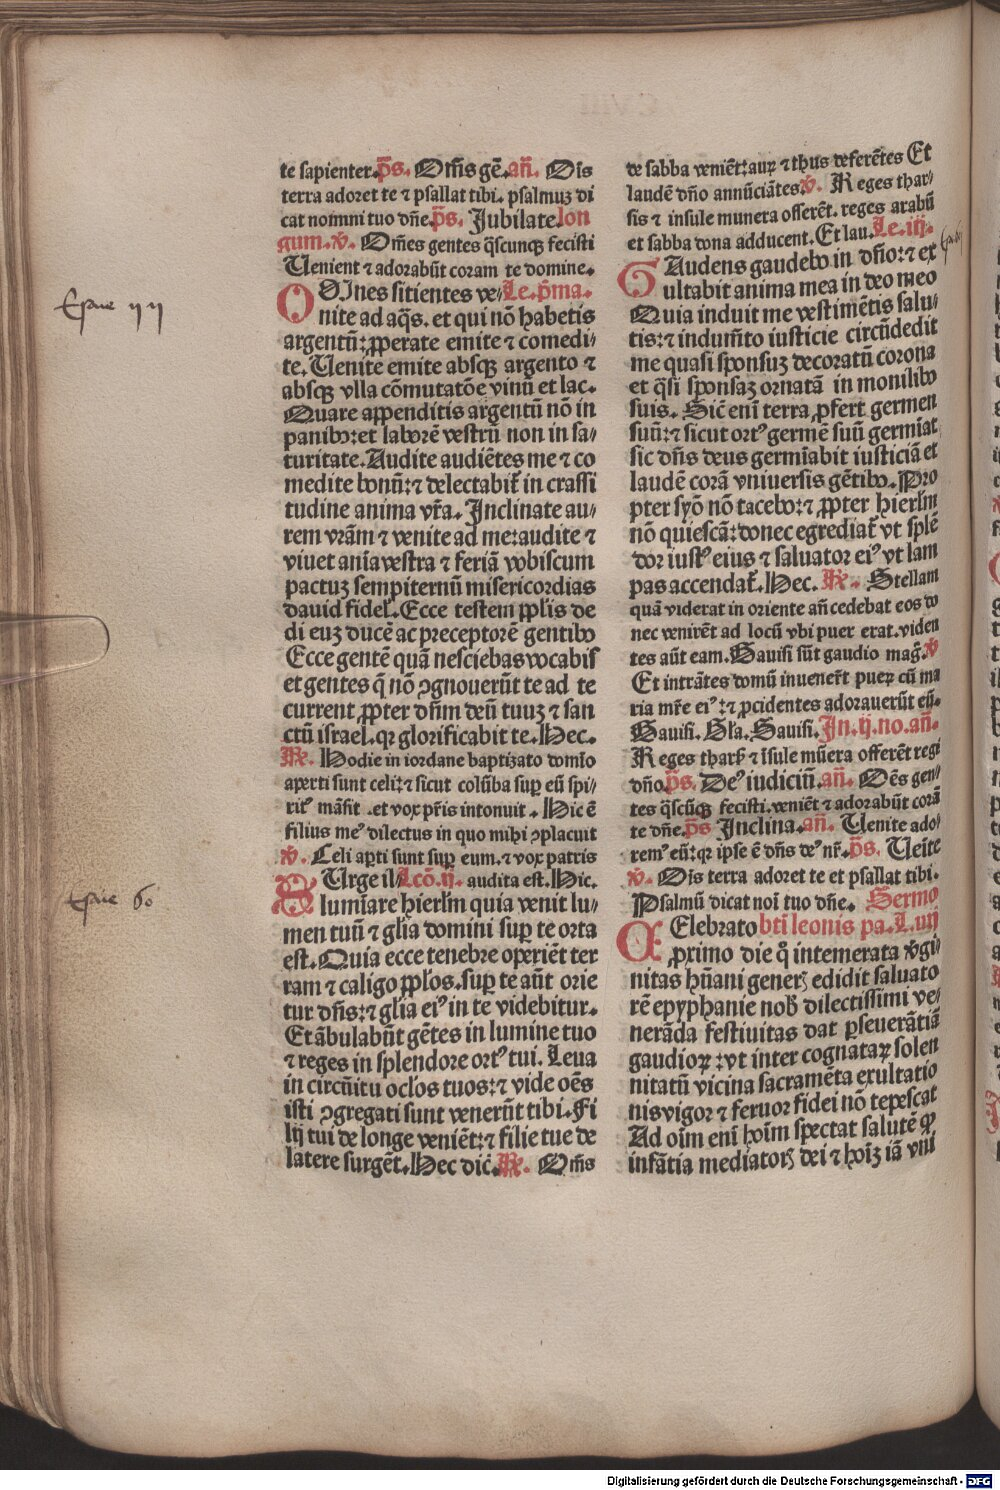 te sapienter. p̄s. Om̄s gē. an̄. Oīs
terra adoret te ⁊ psallat tibi. psalmuꝫ di
cat nomini tuo dn̄e. p̄s. Jubilate. lon
gum. v̄. Om̄es gentes q̄scunqꝫ fecisti
Uenient ⁊ adorabūt coram te domine.
OMnes sitientes ve⸗ Le. p̄ma.
nite ad aq̄s. et qui nō habetis
argentū: ꝓperate emite ⁊ comedi⸗
te. Uenite emite absqꝫ argento ⁊
absqꝫ vlla cōmutatōe vinū et lac.
Quare appenditis argentū nō in
panibꝰ: et laborē vestrū non in sa⸗
turitate. Audite audiētes me ⁊ co
medite bonū: ⁊ delectabit̄ in crassi
tudine anima vr̄a. Inclinate au⸗
rem vrām ⁊ venite ad me: audite ⁊
viuet anīa vestra ⁊ feriā vobiscum
pactuꝫ sempiternū misericordias
dauid fideł. Ecce testem ppl̄is de
di euꝫ ducē ac preceptorē gentibꝰ
Ecce gentē quā nesciebas vocabis
et gentes q̄ nō ꝯgnouerūt te ad te
current ꝓpter dn̄m deū tuuꝫ ⁊ san
ctū israel. qꝛ glorificabit te. Hec.
℞. Hodie in iordane baptizato domīo
aperti sunt celi: ⁊ sicut colūba sup eū spi⸗
ritꝰ māsit. et vox pr̄is intonuit. Hic ē
filius meꝰ dilectus in quo mihi ꝯplacuit
v̄. Celi apti sunt sup eum. ⁊ vox patris
SUrge il⸗ Lcō. ij. audita est. Hic.
lumīare hierl̄m quia venit lu⸗
men tuū ⁊ gl̄ia domini sup te orta
est. Quia ecce tenebre operiēt ter
ram ⁊ caligo ppl̄os. sup te aūt orie
tur dn̄s: ⁊ gl̄ia eiꝰ in te videbitur.
Et ābulabūt gētes in lumine tuo
⁊ reges in splendore ortꝰ tui. Leua
in circūitu ocl̄os tuos: ⁊ vide oēs
isti ꝯgregati sunt venerūt tibi. Fi
lij tui de longe veniēt: ⁊ filie tue de
latere surgēt. Hec dic̄. ℞. Om̄s
de sabba veniēt: auꝝ ⁊ thus deferētes Et
laudē dn̄o annūciātes. v̄. Reges thar⸗
sis ⁊ insule munera offerēt. reges arabū
et sabba dona adducent. Et lau. Le. iij.
GAudens gaudebo in dn̄o: ⁊ ex
ultabit anima mea in deo meo
Quia induit me vestimētis salu⸗
tis: ⁊ indumēto iusticie circūdedit
me quasi sponsuꝫ decoratū corona
et q̄si sponsaꝫ ornatā in monilibꝰ
suis. Sic̄ enī terra ꝓfert germen
suū: ⁊ sicut ortꝰ germē suū germīat
sic dn̄s deus germīabit iusticiā et
laudē corā vniuersis gētibꝰ. Pro
pter syō nō tacebo: ⁊ ꝓpter hierl̄m
nō quiescā: donec egrediat̄ vt splē
dor iustꝰ eius ⁊ saluator eiꝰ vt lam
pas accendat̄. Hec. ℞. Stellam
quā viderat in oriente an̄cedebat eos do
nec venirēt ad locū vbi puer erat. viden
tes aūt eam. Gauisi sūt gaudio maḡ. v̄
Et intrātes domū inuenerūt pueꝝ cū ma
ria mr̄e eiꝰ: ⁊ ꝓcidentes adorauerūt eū.
Gauisi. Gl̄a. Gauisi. In. ij. no. an̄.
Reges tharß ⁊ īsule mūera offerēt regi
dn̄o. p̄s. Deꝰ iudiciū. an̄. Oēs gen⸗
tes q̄scūqꝫ fecisti. veniēt ⁊ adorabūt corā
te dn̄e. p̄s Inclina. an̄. Uenite ado⸗
remꝰ eū: qꝛ ipse ē dn̄s deꝰ nr̄. p̄s. Ueīte
v̄. Oīs terra adoret te et psallat tibi.
Psalmū dicat noī tuo dn̄e. Sermo
CElebrato bt̄i leonis pa. L. iiij
ꝓximo die q̄ intemerata v̄gi⸗
nitas hūani generꝭ edidit saluato
rē epyphanie nob̄ dilectissimi ve⸗
nerāda festiuitas dat ꝑseuerātiā
gaudioꝝ: vt inter cognataꝝ solen
nitatū vicina sacramēta exultatio
nis vigor ⁊ feruor fidei nō tepescat
Ad oīm enī hoīm spectat salutē ꝙ
infātia mediatorꝭ dei ⁊ hoīꝫ iā vni
Esaie 44
Esaie 60